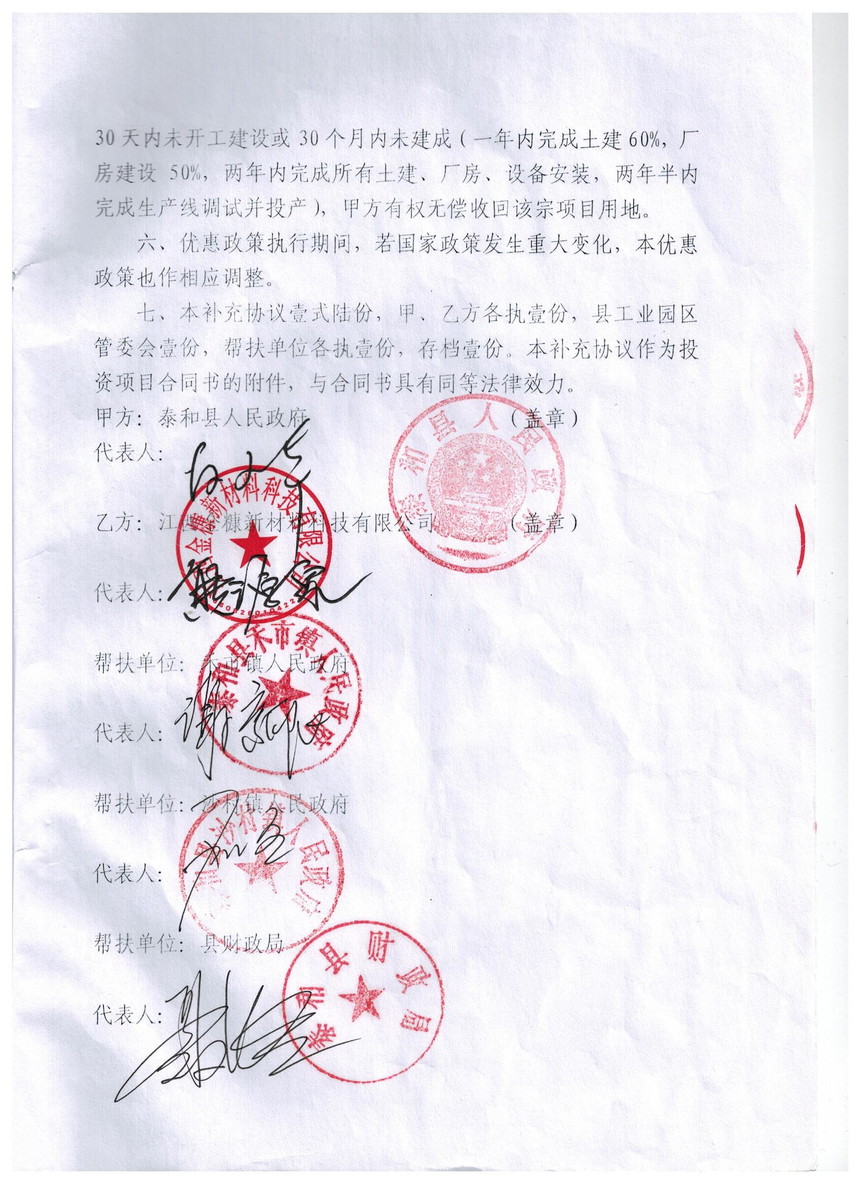 30 天内未开工建设或 30 个月内未建成（一年内完成土建 60%，厂
房建设 50%，两年内完成所有土建、厂房、设备安装，两年半内
完成生产线调试并投产），甲方有权无偿收回该宗项目用地。
六、优惠政策执行期间，若国家政策发生重大变化，本优惠
政策也作相应调整。
七、本补充协议壹式陆份，甲、乙方各执壹份，县工业园区
管委会壹份，帮扶单位各执壹份，存档壹份。本补充协议作为投
资项目合同书的附件，与合同书具有同等法律效力。
甲方：泰和县人民政府 （盖章）
泰和县人民政府
代表人：
乙方：江西金糠新材料科技有限公司 （盖章）
金糠新材料科技有限公
代表人：
帮扶单位：禾市镇人民政府
泰和县禾市镇人民政府
代表人：
帮扶单位：沙村镇人民政府
沙村镇人民政府
代表人：
帮扶单位：县财政局
泰和县财政局
代表人：